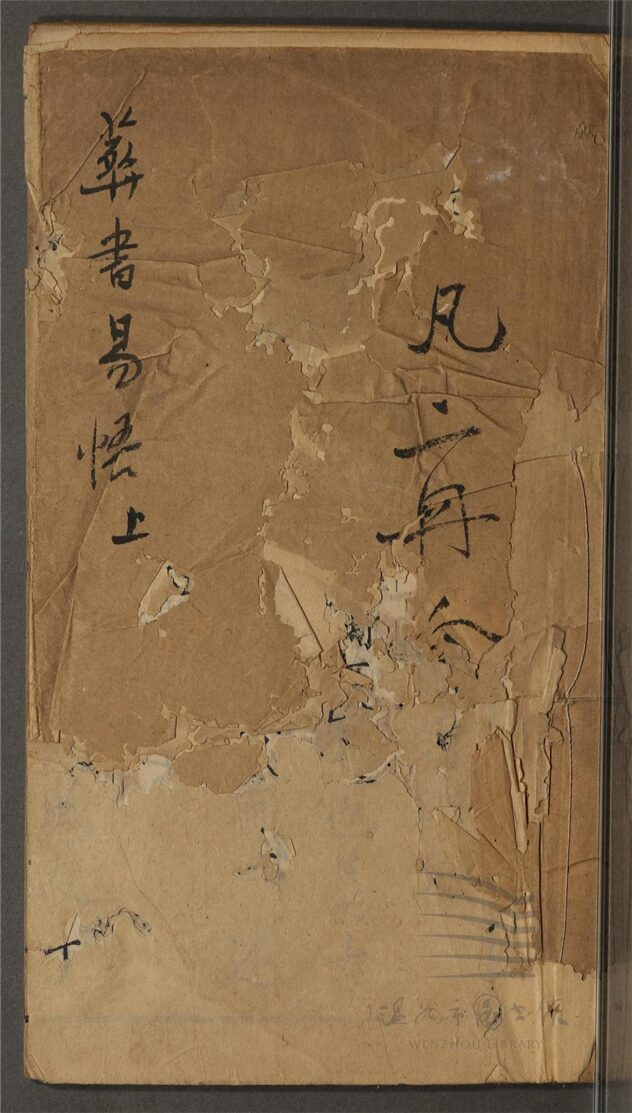 凡二冊
葬書易悟上
温州市图书馆
WENZHOU LIBRARY